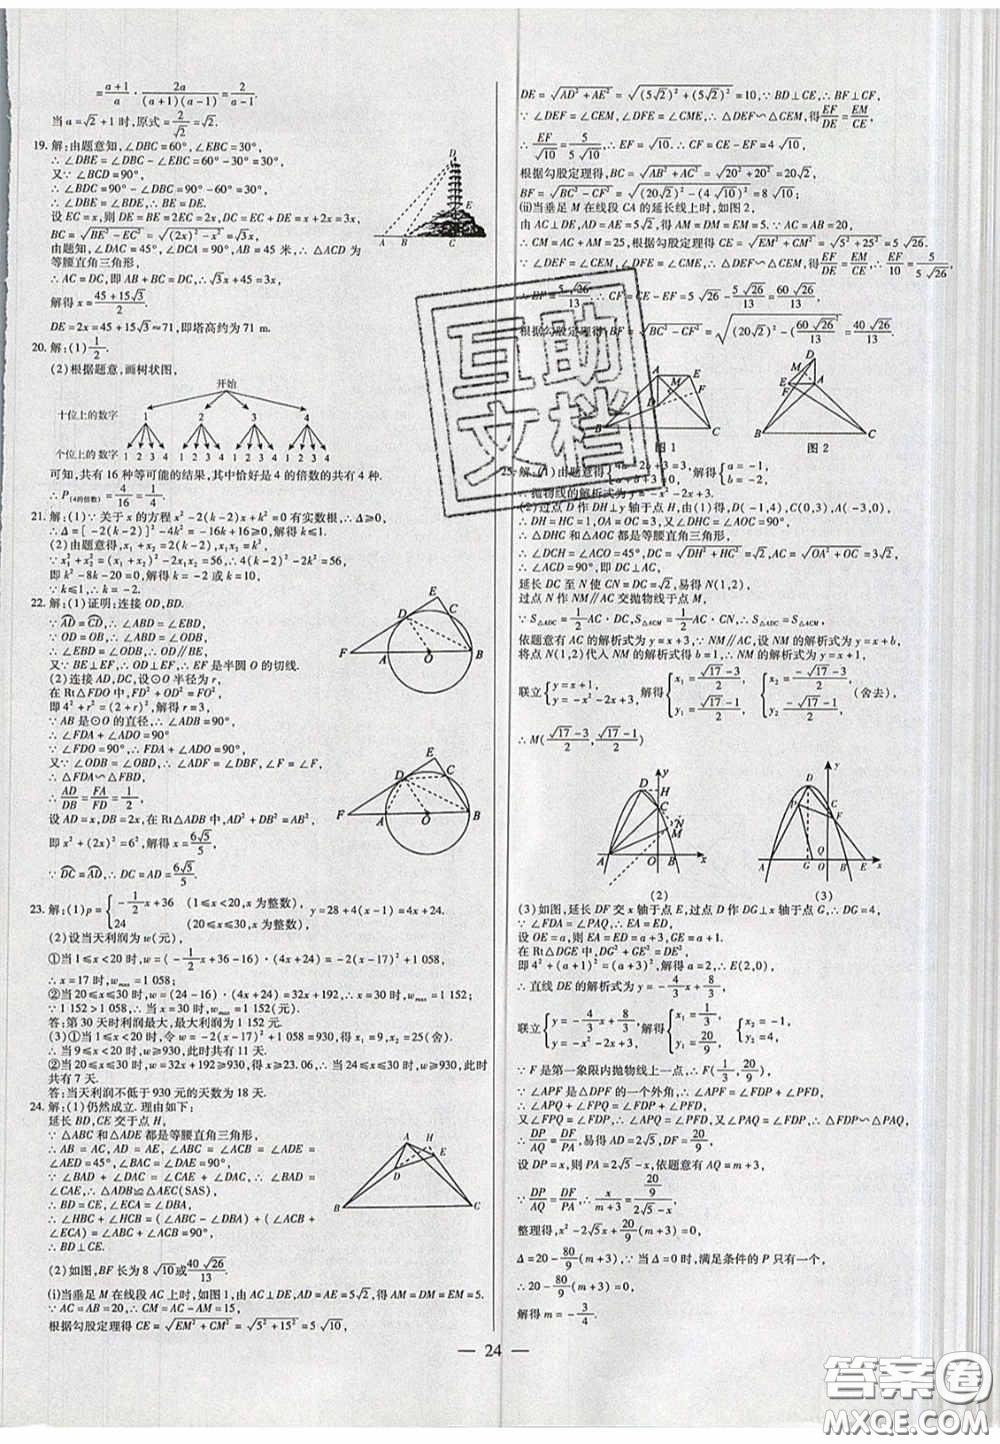 =(a+1)/a · 2a/((a+1)(a-1)) = 2/(a-1).
当a=√2+1时,原式=2/√2=√2.
19. 解:由题意知,∠DBC=60°,∠EBC=30°,
∴∠DBE=∠DBC-∠EBC=60°-30°=30°.
又∵∠BCD=90°,
∴∠BDC=90°-∠DBC=90°-60°=30°.
∴∠DBE=∠BDE.∴BE=DE.
设EC=x,则DE=BE=2EC=2x,DC=EC+DE=x+2x=3x,
BC=√(BE²-EC²)=√((2x)²-x²)=√3x,
由题知,∠DAC=45°,∠DCA=90°,AB=45米,∴△ACD为
等腰直角三角形,
∴AC=DC,即AB+BC=DC,∴45+√3x=3x,
解得x=(45+15√3)/2.
DE=2x=45+15√3≈71,即塔高约为71 m.
20. 解:(1)1/2.
(2)根据题意,画树状图,
开始
十位上的数字 1 2 3 4
个位上的数字 1 2 3 4 1 2 3 4 1 2 3 4 1 2 3 4
可知,共有16种等可能的结果,其中恰好是4的倍数的共有4种.
∴P(4的倍数)=4/16=1/4.
21. 解:(1)∵关于x的方程x²-2(k-2)x+k²=0有实数根,∴Δ≥0,
∴Δ=[-2(k-2)]²-4k²=-16k+16≥0,解得k≤1.
(2)由题意得,x₁+x₂=2(k-2),x₁x₂=k²,
∵x₁²+x₂²=(x₁+x₂)²-2x₁x₂=56,∴4(k-2)²-2k²=56,
即k²-8k-20=0,解得k=-2或k=10,
∵k≤1,∴k=-2.
22. 解:(1)证明:连接OD,BD.
∵AD=CD,∴∠ABD=∠EBD,
∵OD=OB,∴∠ABD=∠ODB,
∴∠EBD=∠ODB,∴OD∥BE,
又∵BE⊥EF,∴OD⊥EF,∴EF是半圆O的切线.
(2)连接AD,DC,设⊙O半径为r,
在Rt△FDO中,FD²+OD²=FO²,
即4²+r²=(2+r)²,解得r=3,
∵AB是⊙O的直径,∴∠ADB=90°,
∵∠FDO=90°,∴∠FDA+∠ADO=90°,
又∵∠ODB=∠OBD,∴∠ADF=∠DBF,∠F=∠F,
∴△FDA∽△FBD,
∴AD/DB=FA/FD=2/4=1/2,
设AD=x,DB=2x,在Rt△ADB中,AD²+DB²=AB²,
即x²+(2x)²=6²,解得x=6√5/5,
∵DC=AD,∴DC=AD=6√5/5.
23. 解:(1)p={-1/2x+36 (1≤x<20,x为整数) y=28+4(x-1)=4x+24.
24 (20≤x≤30,x为整数),
(2)设当天利润为w(元),
①当1≤x<20时,w=(-1/2x+36-16)·(4x+24)=-2(x-17)²+1 058,
∴x=17时,w_max=1 058;
②当20≤x≤30时,w=(24-16)·(4x+24)=32x+192,∴x=30时,w_max=1 152;
∵1 152>1 058,∴x=30时,w_max=1 152.
答:第30天时利润最大,最大利润为1 152元.
(3)①当1≤x<20时,令w=-2(x-17)²+1 058=930,得x=9或x=25(舍).
∴当9≤x<20时,w≥930,此时共有11天.
②当20≤x≤30时,w=32x+192≥930,得x≥23.06,∴当24≤x≤30时,w≥930,此时
共有7天.
答:当天利润不低于930元的天数为18天.
24. 解:(1)仍然成立.理由如下:
延长BD,CE交于点H,
∵△ABC和△ADE都是等腰直角三角形,
∴AB=AC,AD=AE,∠ABC=∠ACB=∠ADE=
∠AED=45°,∠BAC=∠DAE=90°,
∵∠BAD+∠DAC=∠CAE+∠DAC=90°,∴∠BAD=
∠CAE,∴△ADB≌△AEC(SAS),
∴BD=CE,∠ECA=∠DBA,
∴∠HBC+∠HCB=(∠ABC-∠DBA)+(∠ACB+
∠ECA)=∠ABC+∠ACB=90°,
∴BD⊥CE.
(2)如图,BF长为8√10或40√26/13.
(i)当垂足M在线段AC上时,如图1,由AC⊥DE,AD=AE=5√2,得AM=EM=5.
∵AC=AB=20,∴CM=AC-AM=15,
根据勾股定理得CE=√(EM²+CM²)=√(5²+15²)=5√10,
DE=√(AD²+AE²)=√((5√2)²+(5√2)²)=10,∵BD⊥CE,∴BF⊥CF,
∵∠DEF=∠CEM,∠DFE=∠CME,∴△DEF∽△CEM,得EF/EM=DE/CE,
∴EF/5=10/5√10,∴EF=√10.∴CF=CE-EF=4√10,
根据勾股定理得,BC=√(AB²+AC²)=√(20²+20²)=20√2,
BF=√(BC²-CF²)=√((20√2)²-(4√10)²)=8√10;
(ii)当垂足M在线段CA的延长线上时,如图2,
由AC⊥DE,AD=AE=5√2,得AM=DM=EM=5.∵AC=AB=20,
∴CM=AC+AM=25,根据勾股定理得CE=√(EM²+CM²)=√(5²+25²)=5√26.
∵∠DEF=∠CEM,∠DFE=∠CME,∴△DEF∽△CEM,得EF/EM=DE/CE,∴EF/10=5/5√26,
∴EF=5√26/13.∴CF=CE-EF=5√26-5√26/13=60√26/13,
根据勾股定理得BF=√(BC²-CF²)=√((20√2)²-(60√26/13)²)=40√26/13.
图1 图2
25. 解:(1)由题意得{4a-2b+3=3, a+b+3=0,解得{a=-1, b=-2.
∴抛物线的解析式为y=-x²-2x+3.
(2)过点D作DH⊥y轴于点H,由(1)得,D(-1,4),C(0,3),A(-3,0),
∴DH=HC=1,OA=OC=3,又∵∠DHC=∠AOC=90°,
∴△DHC和△AOC都是等腰直角三角形,
∴∠DCH=∠ACO=45°,DC=√(DH²+HC²)=√2,AC=√(OA²+OC²)=3√2,
∴∠ACD=90°,即DC⊥AC,
延长DC至N使CN=DC=√2,易得N(1,2)
过点N作NM∥AC交抛物线于点M,
∵S△ADC=1/2AC·DC,S△ACM=1/2AC·CN,∴S△ADC=S△ACM,
依题意有AC的解析式为y=x+3,∵NM∥AC,设NM的解析式为y=x+b,
将点N(1,2)代入NM的解析式得b=1,∴NM的解析式为y=x+1,
联立{y=x+1, y=-x²-2x+3,解得{x₁=(√17-3)/2, y₁=(√17-1)/2, {x₂=(-√17-3)/2, y₂=(-√17-1)/2 (舍去),
∴M((√17-3)/2,(√17-1)/2)
(2) (3)
(3)如图,延长DF交x轴于点E,过点D作DG⊥x轴于点G,∴DG=4,
∵∠FDA=∠PAQ,∴EA=ED,
设OE=a,则EA=ED=a+3,GE=a+1.
在Rt△DGE中,DG²+GE²=DE²,
即4²+(a+1)²=(a+3)²,解得a=2,∴E(2,0),
∴直线DE的解析式为y=-4/3x+8/3,
联立{y=-4/3x+8/3, y=-x²-2x+3,解得{x₁=1/3, y₁=20/9, {x₂=-1, y₂=4,
∵F是第一象限内抛物线上一点,∴F(1/3,20/9),
∵∠APF是△DPF的一个外角,∴∠APF=∠FDP+∠PFD,
∴∠APQ+∠FPQ=∠FDP+∠PFD,
又∠FPQ=∠FDP=∠PAQ,∴∠APQ=∠PFD,∴△FDP∽△PAQ,
∴DP/AQ=DF/PA,易得AD=2√5,DF=20/9,
设DP=x,则PA=2√5-x,依题意有AQ=m+3,
∵DP/AQ=DF/PA,∴x/(m+3)=(20/9)/(2√5-x),
整理得,x²-2√5x+20/9(m+3)=0,
Δ=20-80/9(m+3),∵当Δ=0时,满足条件的P只有一个,
∴20-80/9(m+3)=0,
解得m=-3/4.
— 24 —
互助文档
答案圈
MXQE.COM